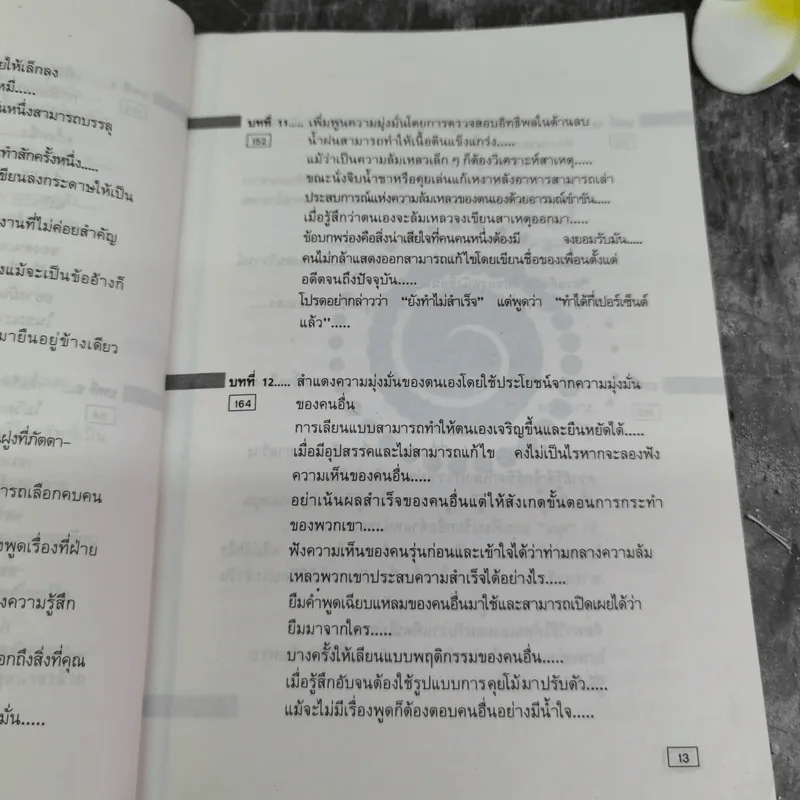 ยให้เล็กลง
หมี.....
นหนึ่งสามารถบรรลุ
ทำสักครั้งหนึ่ง.....
ขียนลงกระดาษให้เป็น
งานที่ไม่ค่อยสำคัญ
งแม้จะเป็นข้ออ้างก็
มายืนอยู่ข้างเดียว
ฝูงที่ภัตตา-
ารถเลือกคบคน
งพูดเรื่องที่ฝ่าย
งความรู้สึก
อกถึงสิ่งที่คุณ
มั่น.....
บทที่ 11..... เพิ่มพูนความมุ่งมั่นโดยการตรวจสอบอิทธิพลในด้านลบ
152 น้ำฝนสามารถทำให้เนื้อดินแข็งแกร่ง.....
แม้ว่าเป็นความล้มเหลวเล็ก ๆ ก็ต้องวิเคราะห์สาเหตุ.....
ขณะนั่งจิบน้ำชาหรือคุยเล่นแก้เหงาหลังอาหารสามารถเล่า
ประสบการณ์แห่งความล้มเหลวของตนเองด้วยอารมณ์ขำขัน.....
เมื่อรู้สึกว่าตนเองจะล้มเหลวจงเขียนสาเหตุออกมา.....
ข้อบกพร่องคือสิ่งน่าเสียใจที่คนคนหนึ่งต้องมี จงยอมรับมัน.....
คนไม่กล้าแสดงออกสามารถแก้ไขโดยเขียนชื่อของเพื่อนตั้งแต่
อดีตจนถึงปัจจุบัน.....
โปรดอย่ากล่าวว่า “ยังทำไม่สำเร็จ” แต่พูดว่า “ทำได้กี่เปอร์เซ็นต์
แล้ว”.....
บทที่ 12..... สำแดงความมุ่งมั่นของตนเองโดยใช้ประโยชน์จากความมุ่งมั่น
164 ของคนอื่น
การเลียนแบบสามารถทำให้ตนเองเจริญขึ้นและยืนหยัดได้.....
เมื่อมีอุปสรรคและไม่สามารถแก้ไข คงไม่เป็นไรหากจะลองฟัง
ความเห็นของคนอื่น.....
อย่าเน้นผลสำเร็จของคนอื่นแต่ให้สังเกตขั้นตอนการกระทำ
ของพวกเขา.....
ฟังความเห็นของคนรุ่นก่อนและเข้าใจได้ว่าท่ามกลางความล้ม
เหลวพวกเขาประสบความสำเร็จได้อย่างไร.....
ยืมคำพูดเฉียบแหลมของคนอื่นมาใช้และสามารถเปิดเผยได้ว่า
ยืมมาจากใคร.....
บางครั้งให้เลียนแบบพฤติกรรมของคนอื่น.....
เมื่อรู้สึกอับจนต้องใช้รูปแบบการคุยโม้มาปรับตัว.....
แม้จะไม่มีเรื่องพูดก็ต้องตอบคนอื่นอย่างมีน้ำใจ.....
13